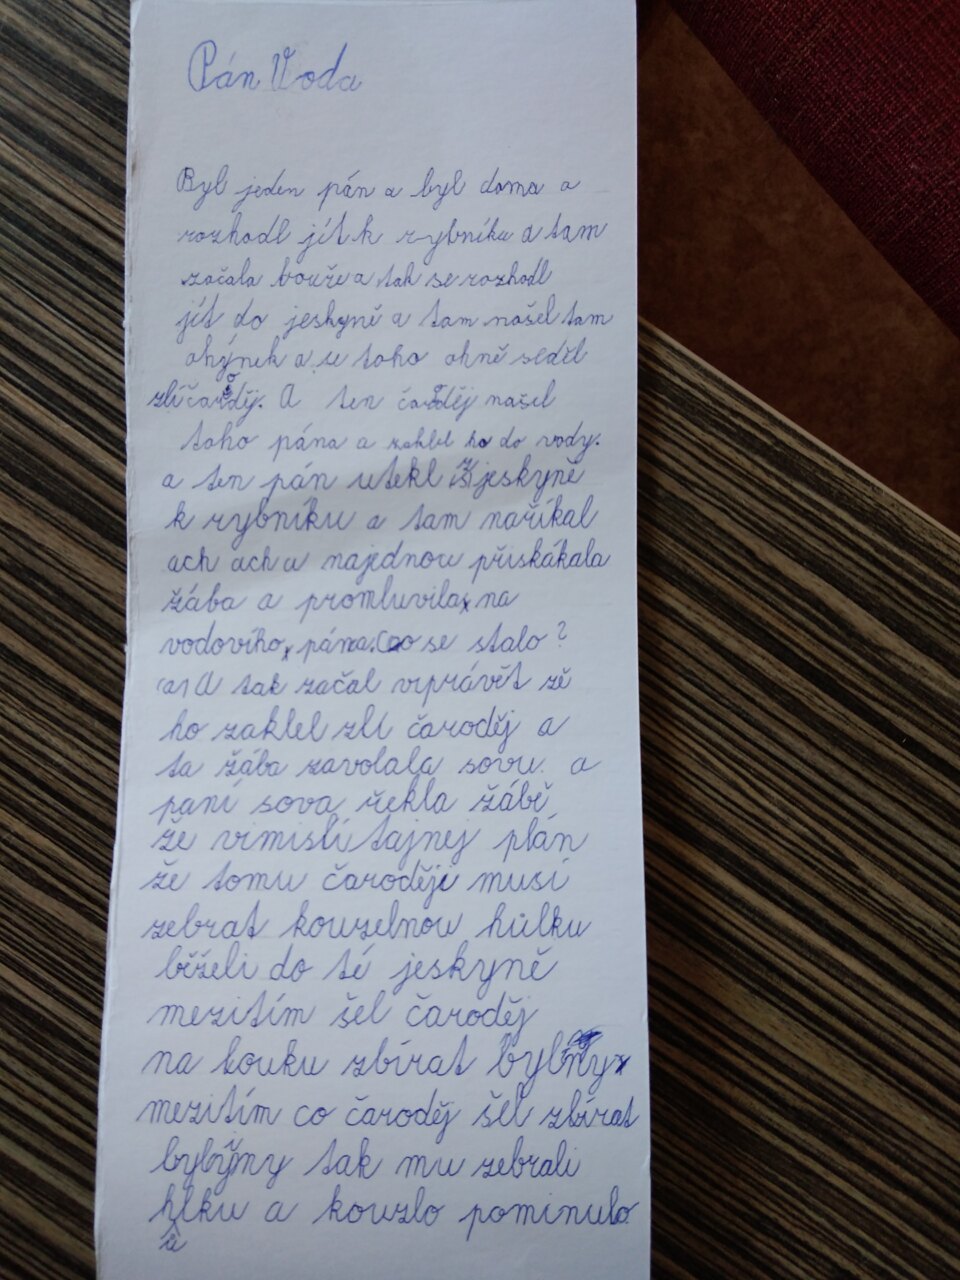 Pán Voda
Byl jeden pán a byl doma a
rozhodl jít k rybníku a tam
začala bouře a tak se rozhodl
jít do jeskyně a tam našel tam
ohýnek a u toho ohně seděl
zlí čaroděj. A ten čaroděj našel
toho pána a zaklel ho do vody.
a ten pán utekl z jeskyně
k rybníku a tam naříkal
ach ach a najednou přiskákala
žába a promluvila na
vodovího pána. Co se stalo?
(a) A tak začal viprávět že
ho zaklel zlí čaroděj a
ta žába zavolala sovu. a
paní sova řekla žábě
že vimislí tajnej plán
že tomu čaroději musí
zebrat kouzelnou hůlku
běželi do té jeskyně
mezitím šel čaroděj
na louku zbírat byliny
mezitím co čaroděj šel zbírat
byliny tak mu zebrali
hůlku a kouzlo pominulo